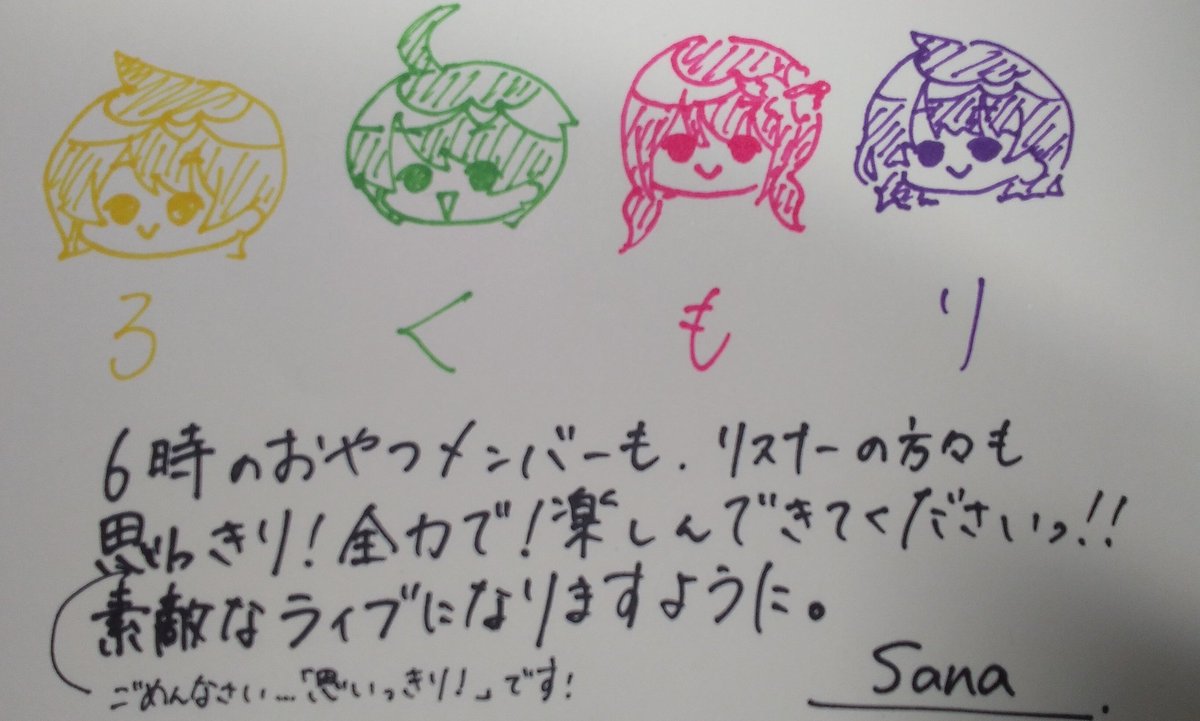 ろくもり
6時のおやつメンバーも、リスナーの方々も
思いっきり!全力で!楽しんできてくださいっ!!
素敵なライブになりますように。
ごめんなさい…「思いっきり!」です!
Sana.